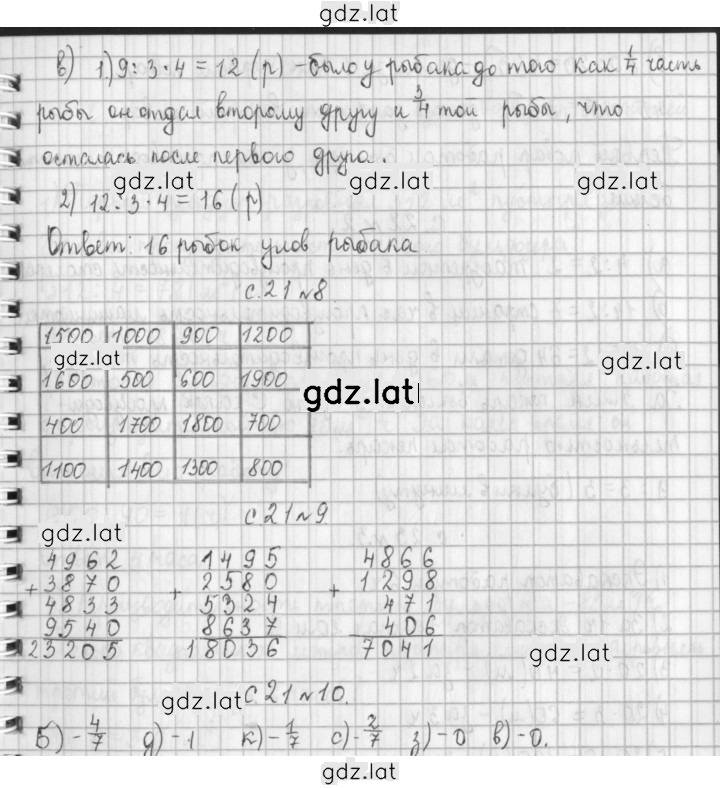 gdz.lat
в) 1) 9 : 3 · 4 = 12 (р) - было у рыбака до того как 1/4 часть
рыбы он отдал второму другу и 3/4 той рыбы, что
осталась после первого друга.
gdz.lat gdz.lat gdz.lat
2) 12 : 3 · 4 = 16 (р)
Ответ: 16 рыбок улов рыбака
с. 21 №8
1500 1000 900 1200
gdz.lat gdz.lat
1600 500 600 1900
gdz.lat
400 1700 1800 700
1100 1400 1300 800
с 21 №9
gdz.lat
4962 1495 4866
+ 3870 + 2580 + 1298
4833 5324 471
9540 8637 406
23205 18036 7041
gdz.lat
gdz.lat с 21 №10.
Б) - 4/7 д) - 1 к) - 1/7 с) - 2/7 з) - 0 в) - 0.
gdz.lat